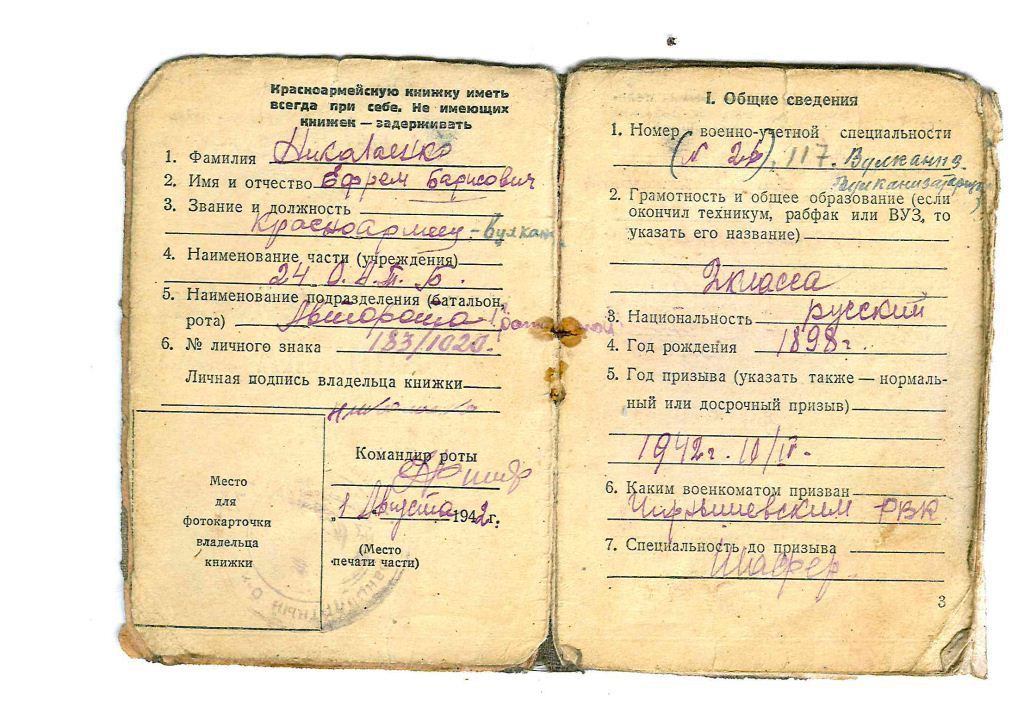 Красноармейскую книжку иметь
всегда при себе. Не имеющих
книжек — задерживать
1. Фамилия Николаенко
2. Имя и отчество Ефрем Барисович
3. Звание и должность
Красноармеец - Вулкан.
4. Наименование части (учреждения)
24 О.А.Т.Б.
5. Наименование подразделения (батальон,
рота) Авторота
6. № личного знака 183/1020.
Личная подпись владельца книжки
Место
для
фотокарточки
владельца
книжки
Командир роты
„1" Августа 1942г.
(Место
печати части)
I. Общие сведения
1. Номер военно-учетной специальности
(N 26), 117. Вулканиз.
Вулканизаторщ
2. Грамотность и общее образование (если
окончил техникум, рабфак или ВУЗ, то
указать его название)
2 класса
3. Национальность русский
4. Год рождения 1898г.
5. Год призыва (указать также — нормаль-
ный или досрочный призыв)
1942г. 10/IV.
6. Каким военкоматом призван
Чернышевским РВК
7. Специальность до призыва
Шофер
3